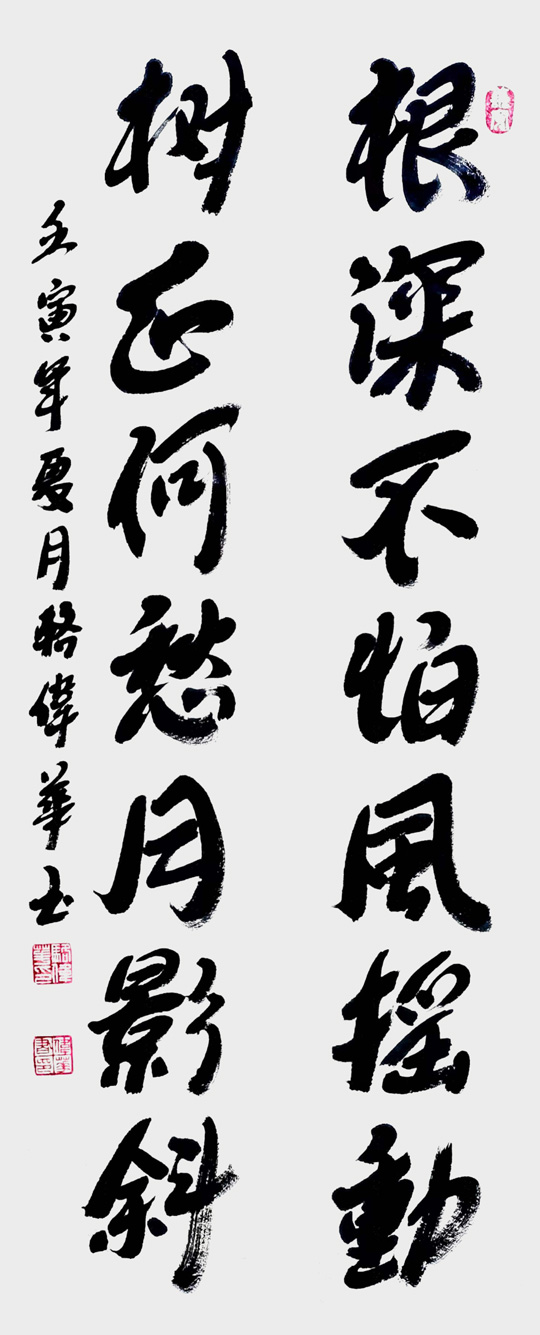 根深不怕風摇動
树正何愁月影斜
壬寅年夏月駱偉華书